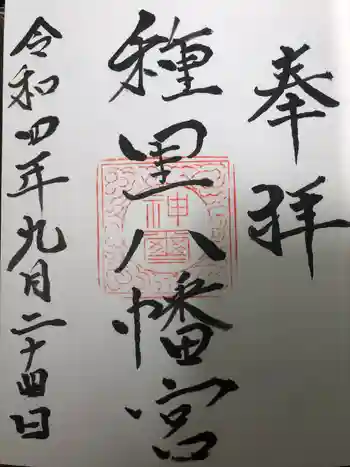 奉拝
種里八幡宮
神璽
令和四年九月二十四日